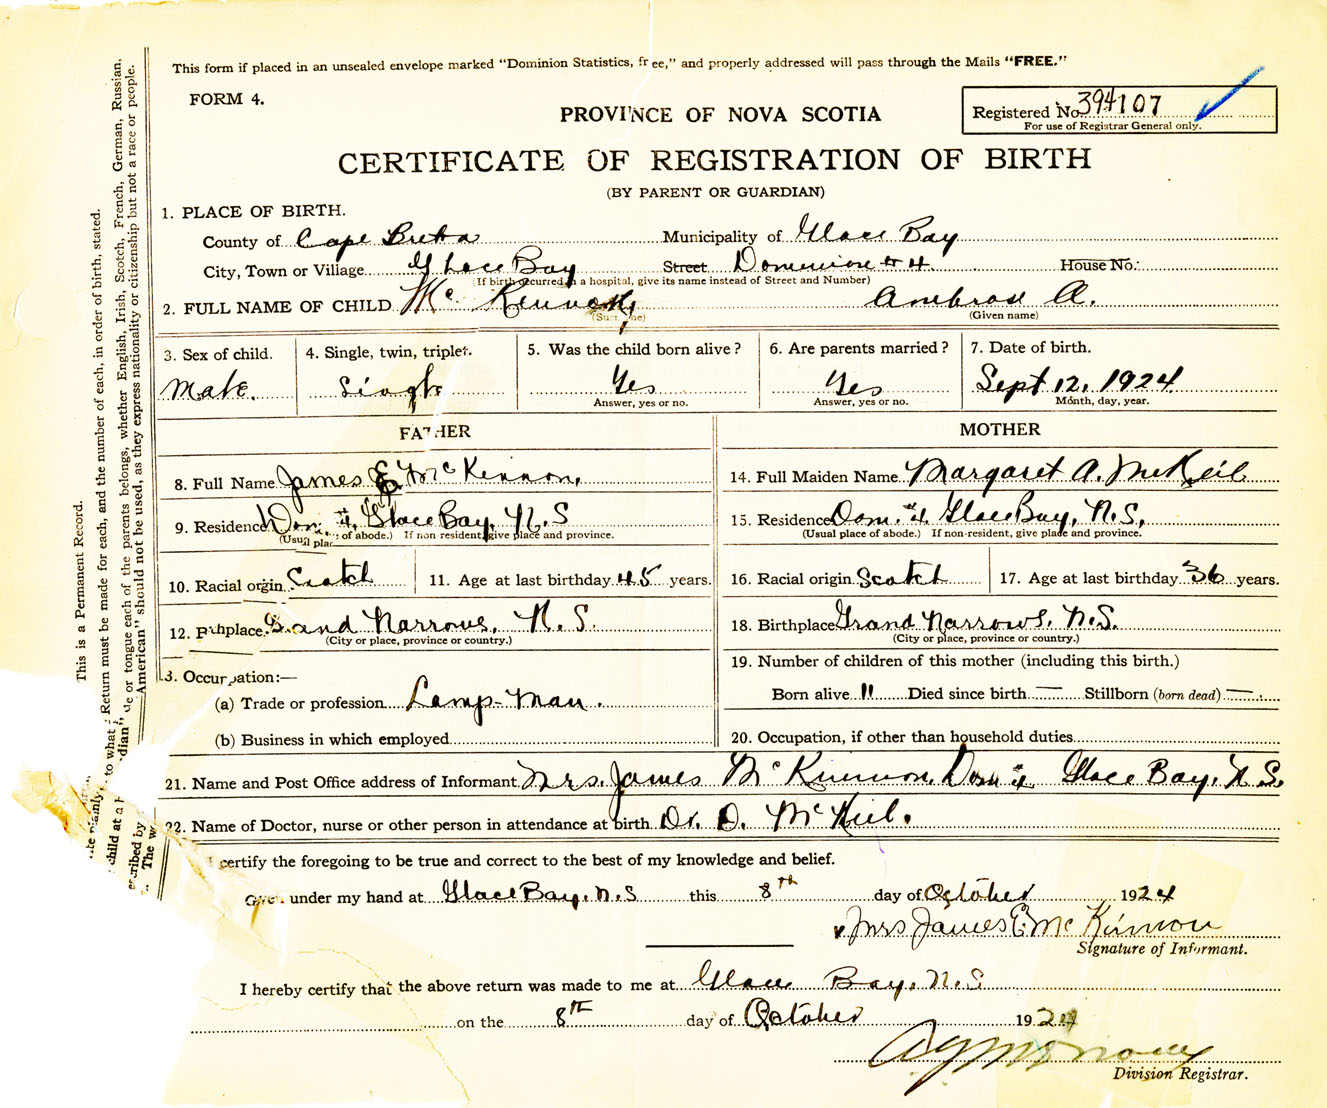 This form if placed in an unsealed envelope marked "Dominion Statistics, free," and properly addressed will pass through the Mails "FREE."
FORM 4.
PROVINCE OF NOVA SCOTIA
Registered No. 394107
For use of Registrar General only.
CERTIFICATE OF REGISTRATION OF BIRTH
(BY PARENT OR GUARDIAN)
1. PLACE OF BIRTH.
County of Cape Breton Municipality of Glace Bay
City, Town or Village Glace Bay Street Dominion #4. House No.
(If birth occurred in a hospital, give its name instead of Street and Number)
2. FULL NAME OF CHILD McKinnon Ambrose A.
(Surname) (Given name)
3. Sex of child. 4. Single, twin, triplet. 5. Was the child born alive? 6. Are parents married? 7. Date of birth.
Male. Single Yes Yes Sept 12, 1924
Answer, yes or no. Answer, yes or no. Month, day, year.
FATHER
8. Full Name James E. McKinnon.
9. Residence Dom. #4, Glace Bay, N.S
(Usual place of abode.) If non resident, give place and province.
10. Racial origin Scotch 11. Age at last birthday 45 years.
12. Birthplace Grand Narrows, N.S.
(City or place, province or country.)
3. Occupation:—
(a) Trade or profession Lamp-man.
(b) Business in which employed
MOTHER
14. Full Maiden Name Margaret A. McNeil
15. Residence Dom. #4 Glace Bay, N.S.
(Usual place of abode.) If non-resident, give place and province.
16. Racial origin Scotch 17. Age at last birthday 36 years.
18. Birthplace Grand Narrows. N.S.
(City or place, province or country.)
19. Number of children of this mother (including this birth.)
Born alive 11 Died since birth — Stillborn (born dead) —.
20. Occupation, if other than household duties
21. Name and Post Office address of Informant Mrs. James McKinnon, Dom #4 Glace Bay, N.S.
22. Name of Doctor, nurse or other person in attendance at birth Dr. D. McNeil.
I certify the foregoing to be true and correct to the best of my knowledge and belief.
Given under my hand at Glace Bay, N.S this 8th day of October 1924
Mrs James E. McKinnon
Signature of Informant.
I hereby certify that the above return was made to me at Glace Bay, N.S
on the 8th day of October 1924
Division Registrar.
This is a Permanent Record.
Return must be made for each, and the number of each, in order of birth, stated.
or tongue each of the parents belongs, whether English, Irish, Scotch, French, German, Russian,
American" should not be used, as they express nationality or citizenship but not a race or people.